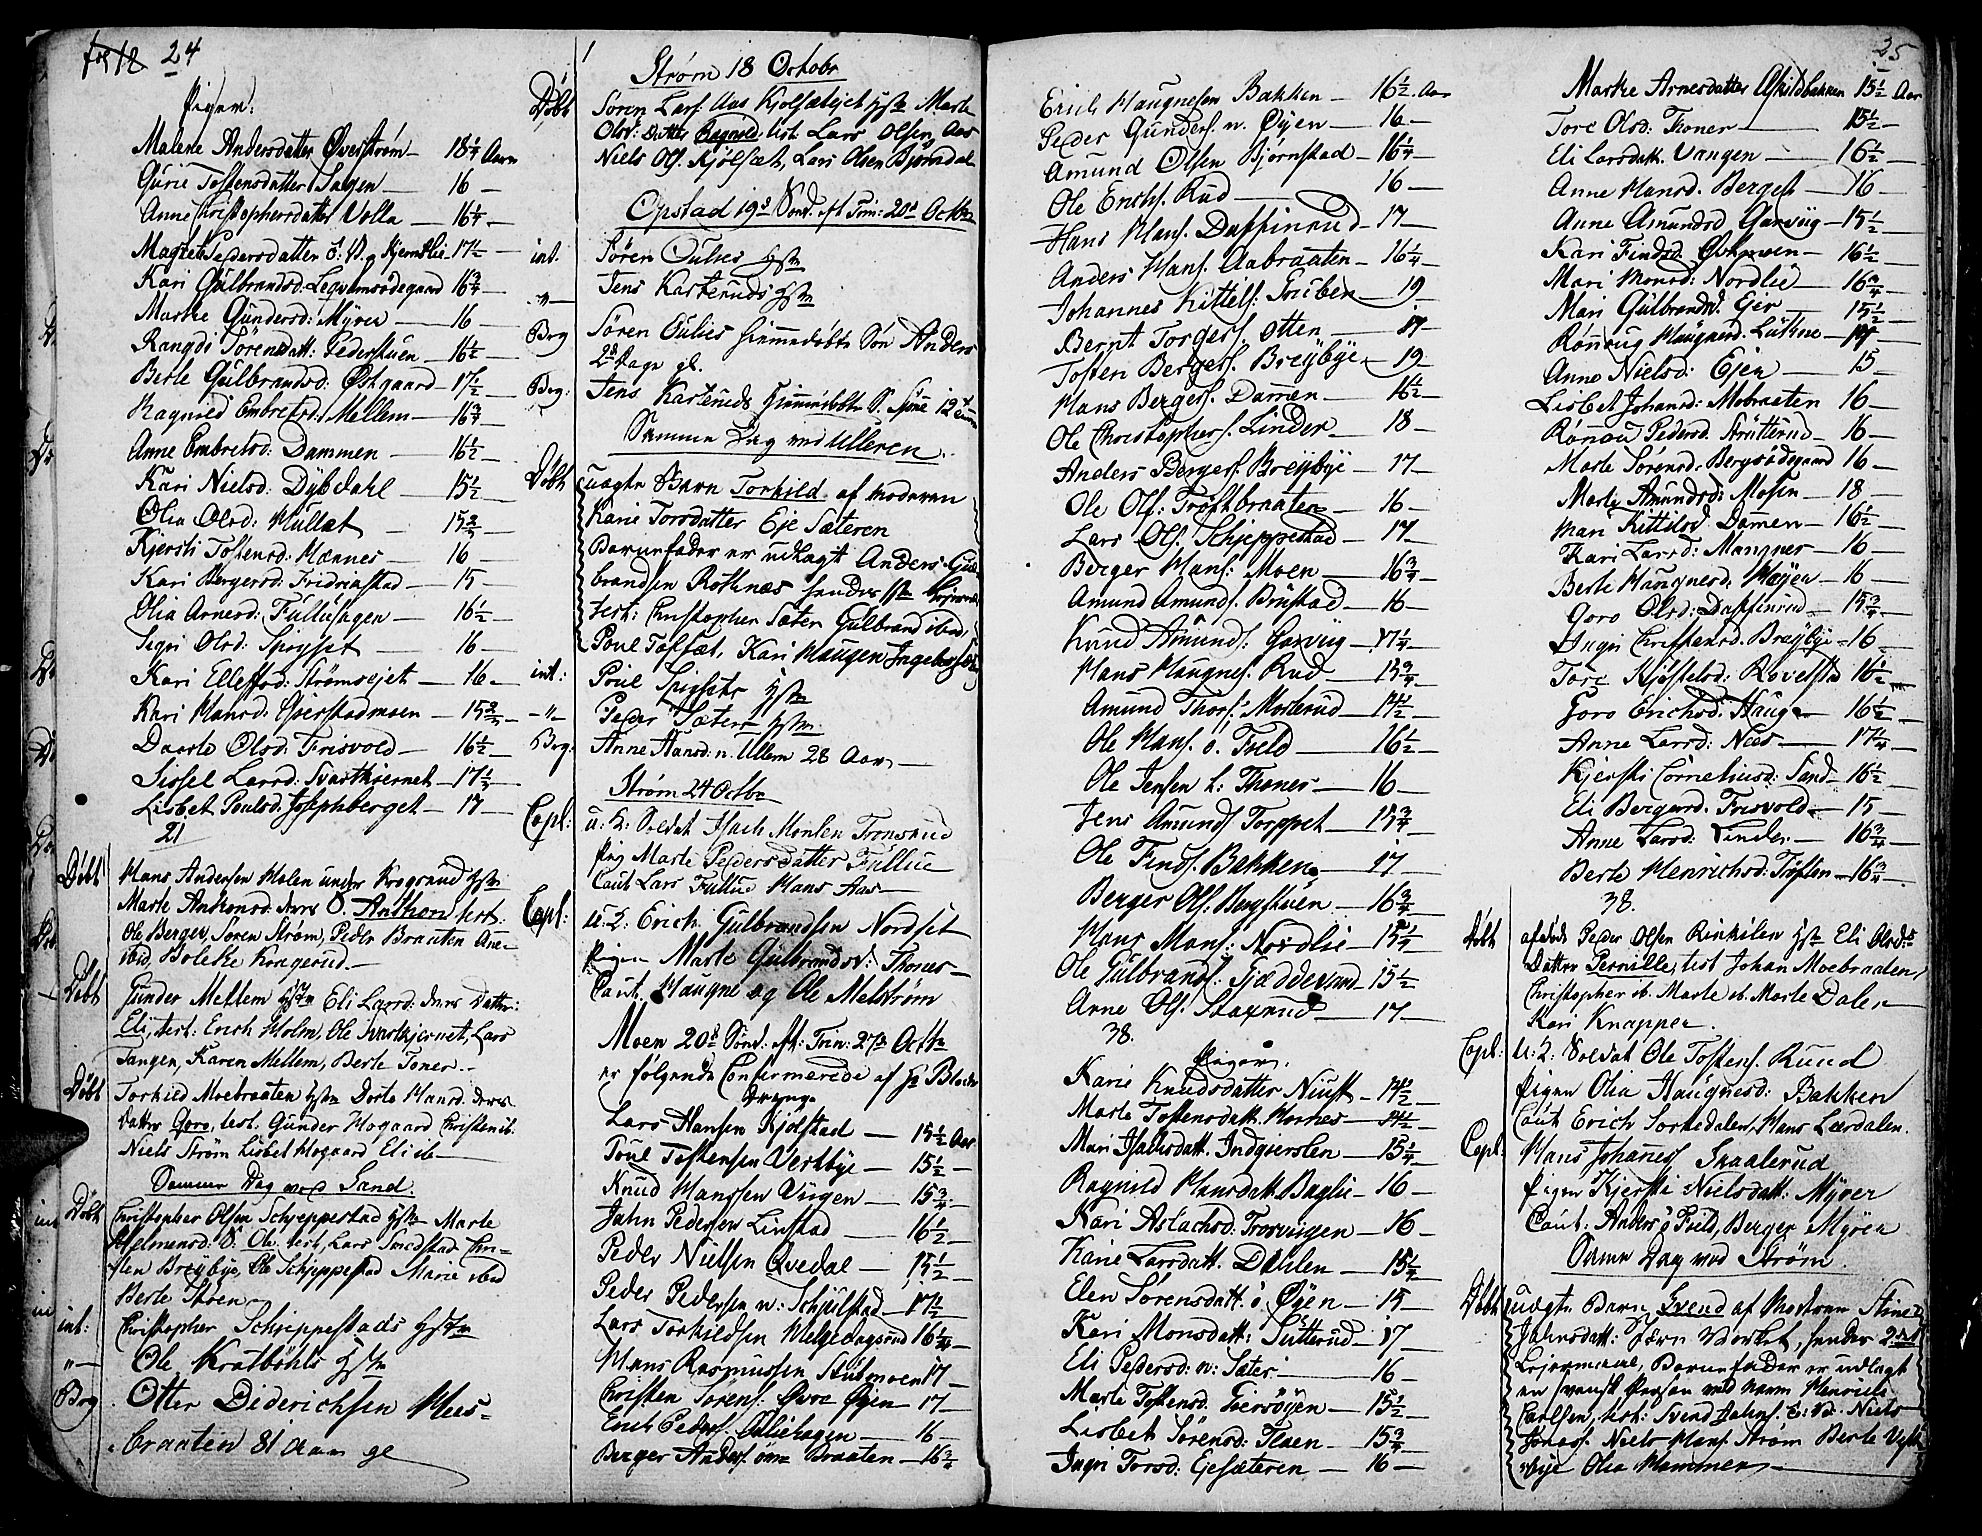 24
Piger:
Malene Andersdatter Øverstrøm — 18 1/4 Aar
Gurie Tostensdatter Sagen — 16 —
Anne Christophersdatter Volla — 16 1/4 —
Magrete Pedersdatter
Kari Gulbrandsd: 16 3/4
Marthe Gundersd: Myren — 16 —
Rangdi Sörensdatt: Pederstuen — 16 1/2 —
Berte Gulbrandsd: Østgaard — 17 1/2 —
Ragnild Embretsd: Mellem — 16 3/4 —
Anne Embretsd: Dammen — 16 1/2 —
Kari Nielsd: Dybdahl — 15 1/2 —
Olia Olsd: Hullet — 15 3/4 —
Kjersti Tostensd: Mannes — 16 —
Kari Bergersd: Fridrichstad — 15 —
Olia Arnesd: Fulluhagen — 16 1/2 —
Sigri Olsd: Spigset — 16 —
Kari Ellefsd: Strømsejet — 16 —
Kari Hansd: Opstadmoen — 15 3/4 —
Dorte Olsd: Frisvold — 16 1/2 —
Sissel Larsd: Svarttjernet — 17 1/2 —
Lisbet Poulsd: Josephberget — 17 —
21
Döbt Hans Andersen Molen under Krogsrud Hst
Marte Antonsd: deres S. Anthon test:
Ole Berger, Søren Strøm, Peder Braaten Ane
ibid, Boleke Kongerud —
Döbt Gunder Mellem Hst Eli Larsd: deres Datter:
Eli, test: Erich Holm, Ole Svarttjernet, Lars
Tangen, Karen Mellem, Berte Toner —
Döbt Torkild Moebraaten Hst Dorte Hansd: deres
Datter Goro, test: Gunder Hogaard Christen ib:
Niels Strøm Lisbet Hogaard Eli ib —
Samme Dag ved Sand.
Döbt Christopher Olsen Schjeppestad Hst Marte
S: Ole test, Lars Smedstad Chri-
sten Breybye, Ole Schjeppestad Marie ibid
Berte Moen
int: Christopher Schjeppestads Hst
" — Ole Kratbøhls Hst
Beg Otter Diderichsen Mees-
braaten 81 Aar gl
Strøm 18 Octobr
Döbt Søren Lars: Aas Kjølsæteiet Hst Marte
Olsd: Datter Ragnild: test Lars Olsen Aas
Niels Ols: Kjølsæt, Lars Olsen Bjørndal
Opstad 19de Sønd. eft Trin: 20de Octbr
int. Søren Tulies Hst
" — Jens Kasteruds Hst
Beg Søren Tulies hiemmedøbte Søn Anders
2 Dage gl.
Beg: Jens Kasteruds hiemmedøbte S. Jens 12
Samme Dag ved Ulleren
Döbt uægte Barn Torkild af moderen
Karie Torsdatter Eje Sæteren
Barnefader er udlagt Anders Gul-
brandsen Rotnæs hendes
test: Christopher Sæter Gulbrand ibid,
Poul Tolsæt, Kari Haugen Ingeborg
int: Poul Spigsets Hst
" — Peder Sæters Hst
Beg. Anne Hansd: n. Ullern 28 Aar —
Strøm 24 Octbr
Copl: u: S: Soldat Isach Monsen Tronsrud
Pig Marte Pedersdatter Fullue
Caut Lars Fullue Hans Aas
Copl: u: S: Erich Gulbrandsen Nordset
Pigen Marte Gulbrandsd: Thoner —
Caut: Haugne og Ole Melstrøm
Moen 20de Sønd: eft: Trin: 27de Octbr
er følgende Confirmerede af Hr Bloch
Drenge
Lars Hansen Kjølstad — 15 1/2 Aar
Poul Tostensen Verkbye — 15 1/2 —
Knud Hanssen Vingen — 15 3/4 —
Jahn Pedersen Linstad — 16 1/2 —
Peder Nielsen Qvedal — 15 1/2 —
Peder Pedersen n: Schjulstad — 17 1/2 —
Lars Torkildsen Helgedagsrud 16 1/4 —
Hans Rasmussen Stubmoen 17 —
Christen Sörens: Øvre Øyen — 17 —
Erich Peders: Ouliehagen — 16 —
Berger Anders: Braaten — 16 3/4
25
Erich Haugnesen Bakken — 16 1/2 Aar
Peder Gunders: n. Øyen — 16 —
Amund Olsen Bjørnstad — 16 1/4 —
Ole Erichs: Rud — 16 —
Hans Hans: Daffinrud — 17 —
Anders Hans: Aabraaten — 16 1/4 —
Johannes Kittels: Gruben — 19
Bernt Torgers: Otten — 17
Tosten Bergers: Breybye — 19
Hans Bergers: Dammen — 16 1/2 —
Ole Christophers: Linder — 18 —
Anders Bergers: Breybye — 17 —
Ole Ols: Trøftbraaten — 16 —
Lars Ols: Schjeppestad — 17 —
Berger Hans: Moen — 16 3/4 —
Amund Amunds: Brustad — 16 —
Knud Amunds: Garviig — 17 1/4 —
Hans Haugnes: Rud — 15 3/4 —
Amund Thors: Mosterud — 14 1/2 —
Ole Hans: ö. Fuld — 16 1/2 —
Ole Jensen L: Thoner — 16 —
Jens Amunds: Torppet — 15 3/4 —
Ole Finds: Bakken — 17 —
Berger Ols: Bergstuen — 16 3/4 —
Hans Hans: Nordlie — 15 1/4 —
Ole Gulbrands: 15 1/2 —
Arne Ols: Staxrud — 17 —
38.
Piger.
Karie Knudsdatter Niust — 14 1/2 —
Marte Tostensdatt. Hornes — 14 1/2 —
Mari Isaksdatt. Indgierslen — 15 1/4 —
Ragnild Hansdatt. Baglie — 16 —
Kari Aslachsd: Trosvigen — 16 —
Karie Larsdatt. Dahlen — 15 1/4 —
Elen Sørensdatt. ö Øyen — 15 —
Kari Monsdatt: Sutterud — 17 —
Eli Pedersd: n: Sæter — 16 —
Marte Tostensd: Tiersøyen — 15 1/2 —
Lisbet Sørensd: Floen — 15 3/4 —
Ingri Torsd: Ejesæteren — 16 —
Marthe Arnesdatter Askildbakken 15 1/2 Aar
Tore Olsd: Thoner — 15 1/2 —
Eli Larsdatt. Vangen — 16 1/2 —
Anne Hansd. Berget — 16 —
Anne Amundsd Garviig — 15 1/2 —
Kari Findsd 16 1/2 —
Mari Monsd: Nordlie — 16 3/4 —
Mari Gulbrandsd. Ejer — 15 1/2 —
Rönnoug Haugnesd: Lukne —
Anne Nielsd: Ejer — 15 —
Lisbet Johansd: Mobraaten 16 —
Rønnou Pedersd: Strutterud — 16 —
Marte Sørensd: Bergsødegaard 16 —
Marte Amundsd: Mosen — 18 —
Mari Kittilsd Dammen — 16 1/2 —
Kari Larsd: Mangner — 16 —
Berte Haugnesd: Magen — 16 —
Goro Olsd: Daffinrud — 15 3/4 —
Ingri Christensd. Breybye — 16 —
Tore Kjøstelsd: Rovelstad 16 1/2 —
Goro Erichsd: Haug — 16 1/2 —
Anne Larsd: Nees — 17 1/4 —
Kjersti Corneliusd: Sand — 16 1/2 —
Eli Bergersd: Frisvold — 15 —
Anne Larsd: Linder — 16 3/4 —
Berte Henrichsd: Trøften — 16 3/4 —
38.
Døbt afdøde Peder Olsen Rinkilen Hst Eli Olsd:s
Datter Pernille, test Johan Moebraaten,
Christopher ib. Marte ib. Marte Dalen
Kari Knapper.
Copl: u: S: Soldat Ole Tostens: Ruud
Pigen Olia Haugnesd: Bakken
Caut Erich Sortedalen, Hans Lærdalen.
Copl: Hans Johanes: Skaalerud
Pigen Kjersti Nielsdatt: Myrer
Caut: Anders ö Fuld, Berger Myren
Samme Dag ved Strøm
Døbt uægte Barn Svend af Moderen Stine
Jahnsdatt: Jern Værket, hendes 2det
Lejermaal, Barnefader er udlagt
en svensk Person ved navn Henrich
Carlsen, test: Svend Jahns: Niels
Jonas: Niels Hans: Strøm Berte Vest-
bye Olia Hammer —